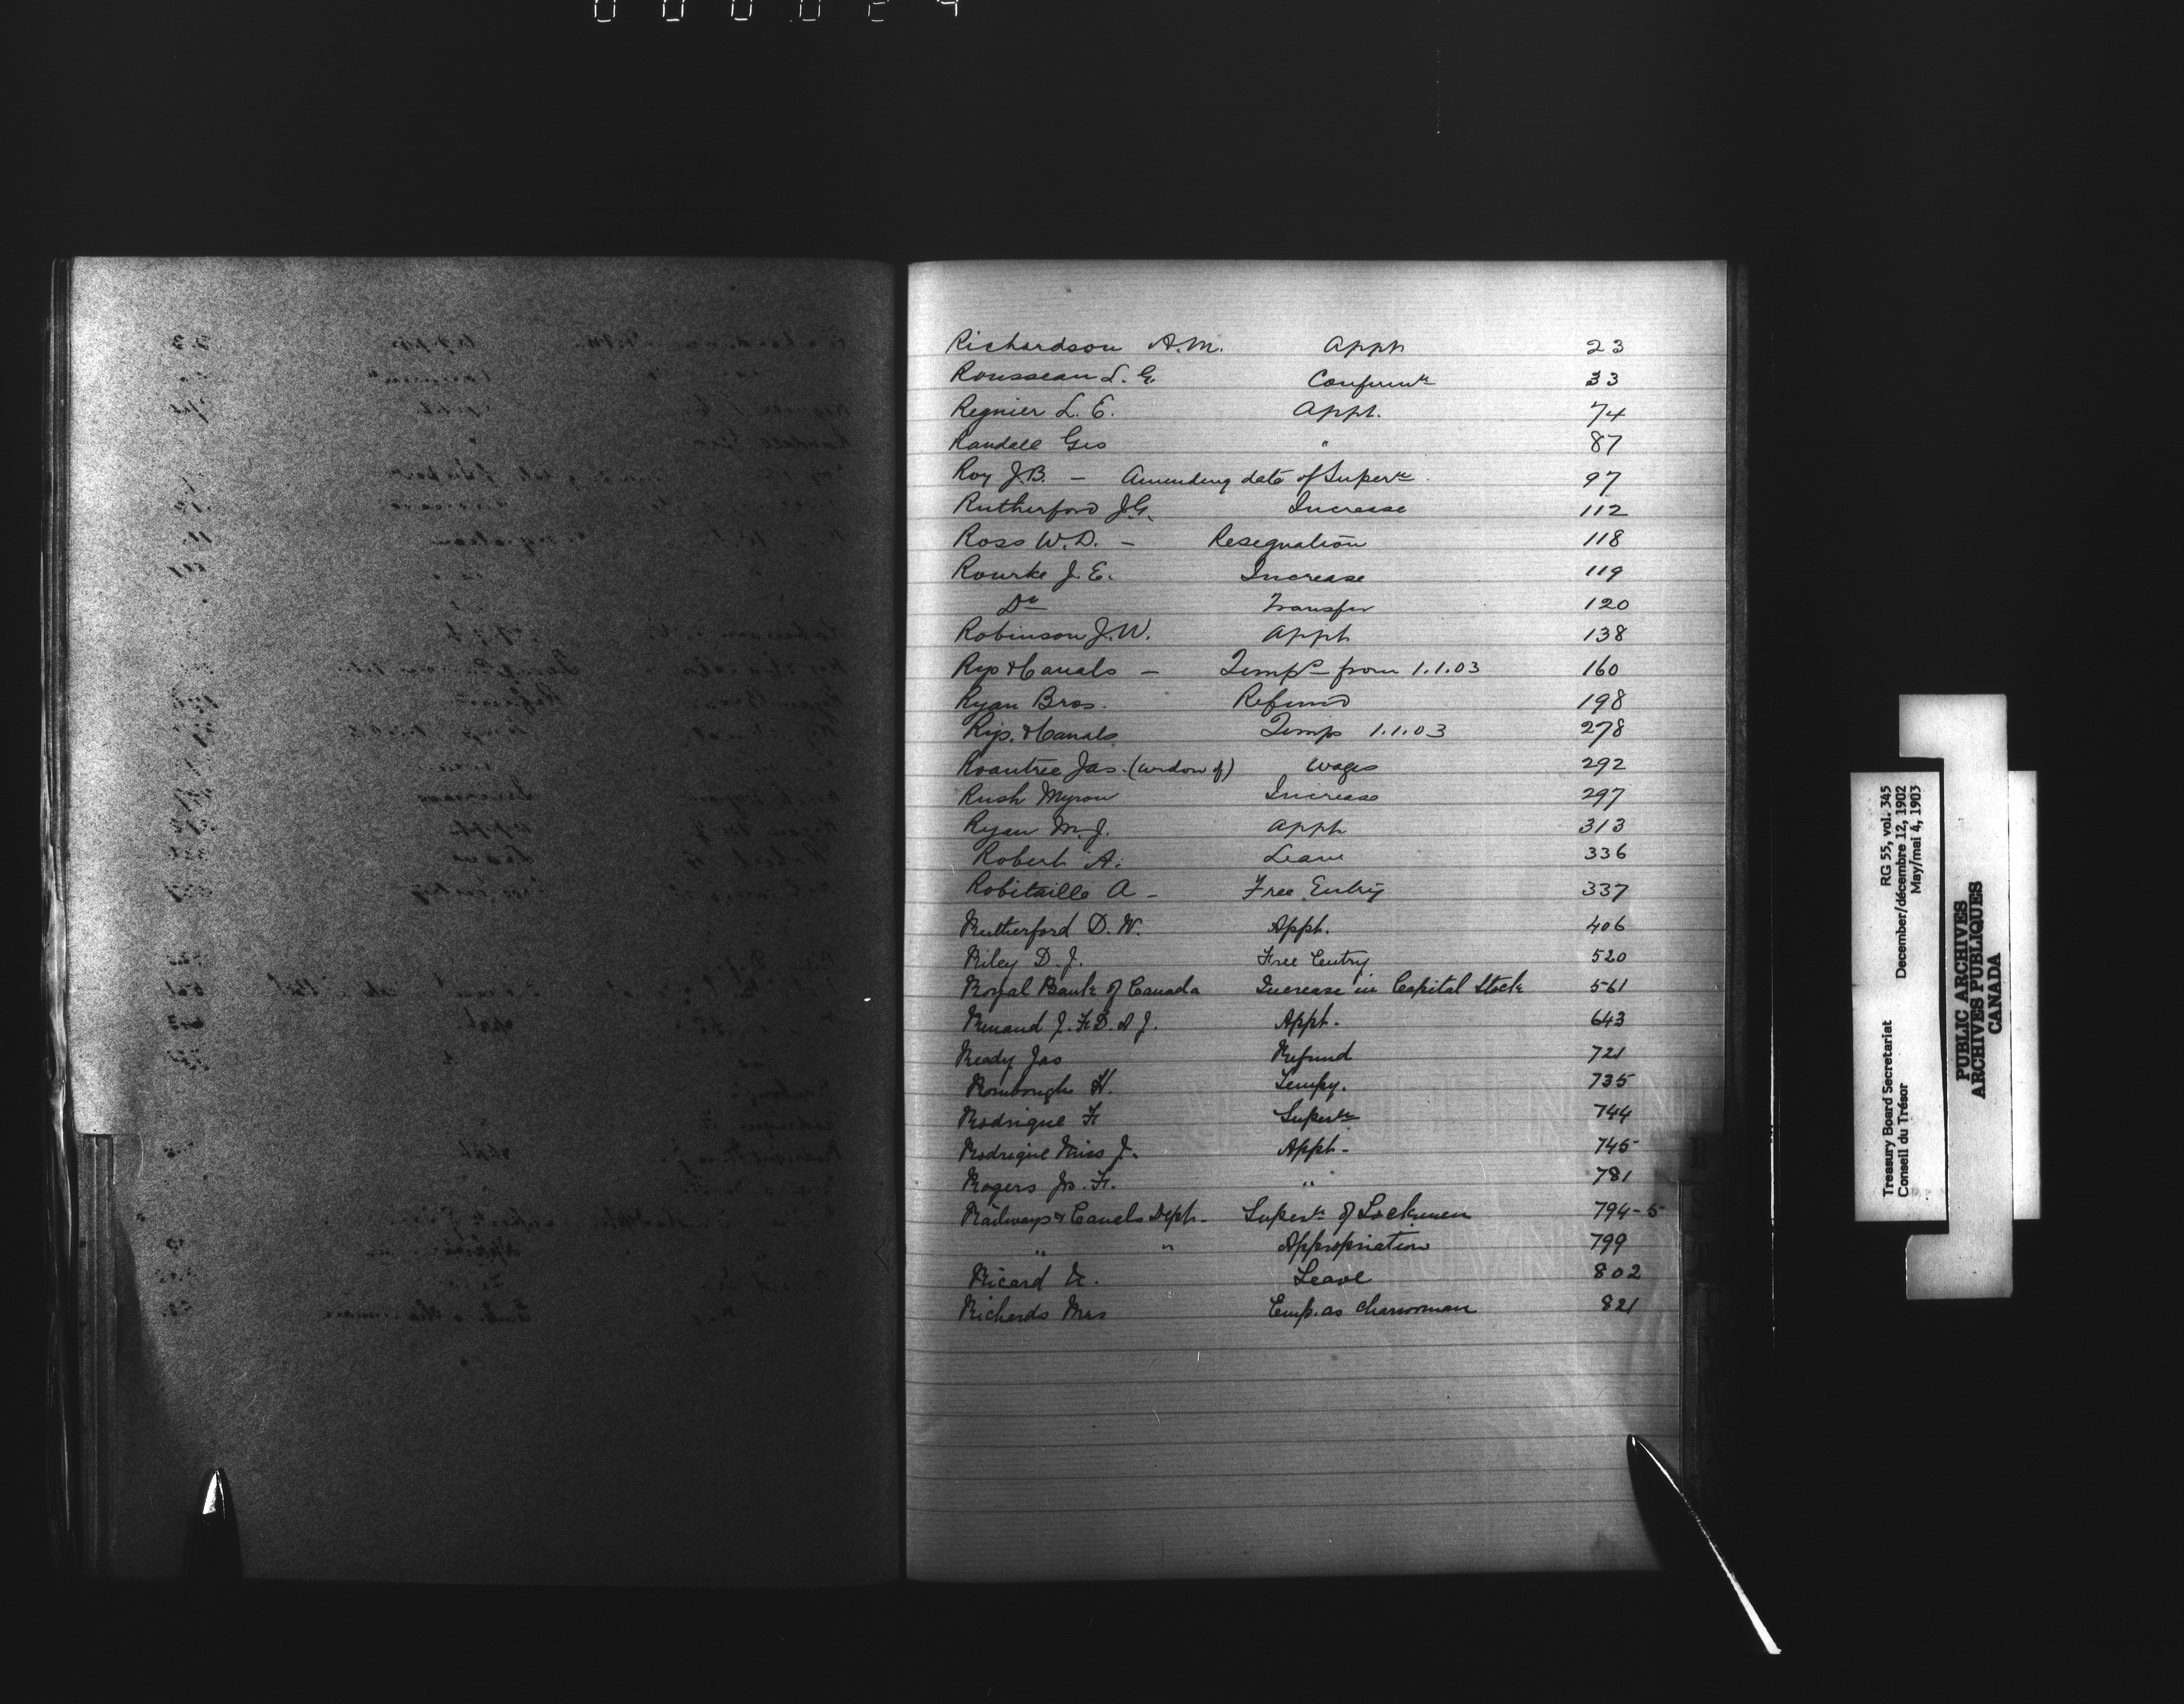 Richardson A.M. Appt 23
Rousseau L. G. Confirmtn 33
Regnier L. E. Appt. 74
Randell Geo " 87
Roy J.B. - Amending date of Supertn 97
Rutherford J.G. Increase 112
Ross W.D. - Resegnation 118
Rourke J. E. Increase 119
Do Transfer 120
Robinson J.W. Appt 138
Rys & Canals - Tempo from 1.1.03 160
Ryan Bros. Refund 198
Rys. & Canals Temps 1.1.03 278
Roantree Jas. (widow of) Wages 292
Rush Myron Increase 297
Ryan M.J. Appt 313
Robert A. Leave 336
Robitaille A - Free Entry 337
Rutherford D. W. Appt. 406
Riley D. J. Free Entry 520
Royal Bank of Canada Increase in Capital Stock 561
Renaud J. F. D. & J. Appt. 643
Ready Jas Refund 721
Rombough H. Tempy. 735
Rodrigue F Supertn 744
Rodrigue Miss J. Appt - 745
Rogers Js. F. " 781
Railways & Canals Dept - Supertn of Lockmen 794-5
" " Appropriation 799
Ricard Leave 802
Richards Mrs Emp. as charwoman 821
Treasury Board Secretariat RG 55, vol. 345
Conseil du Trésor December/décembre 12, 1902
May/mai 4, 1903
PUBLIC ARCHIVES
ARCHIVES PUBLIQUES
CANADA